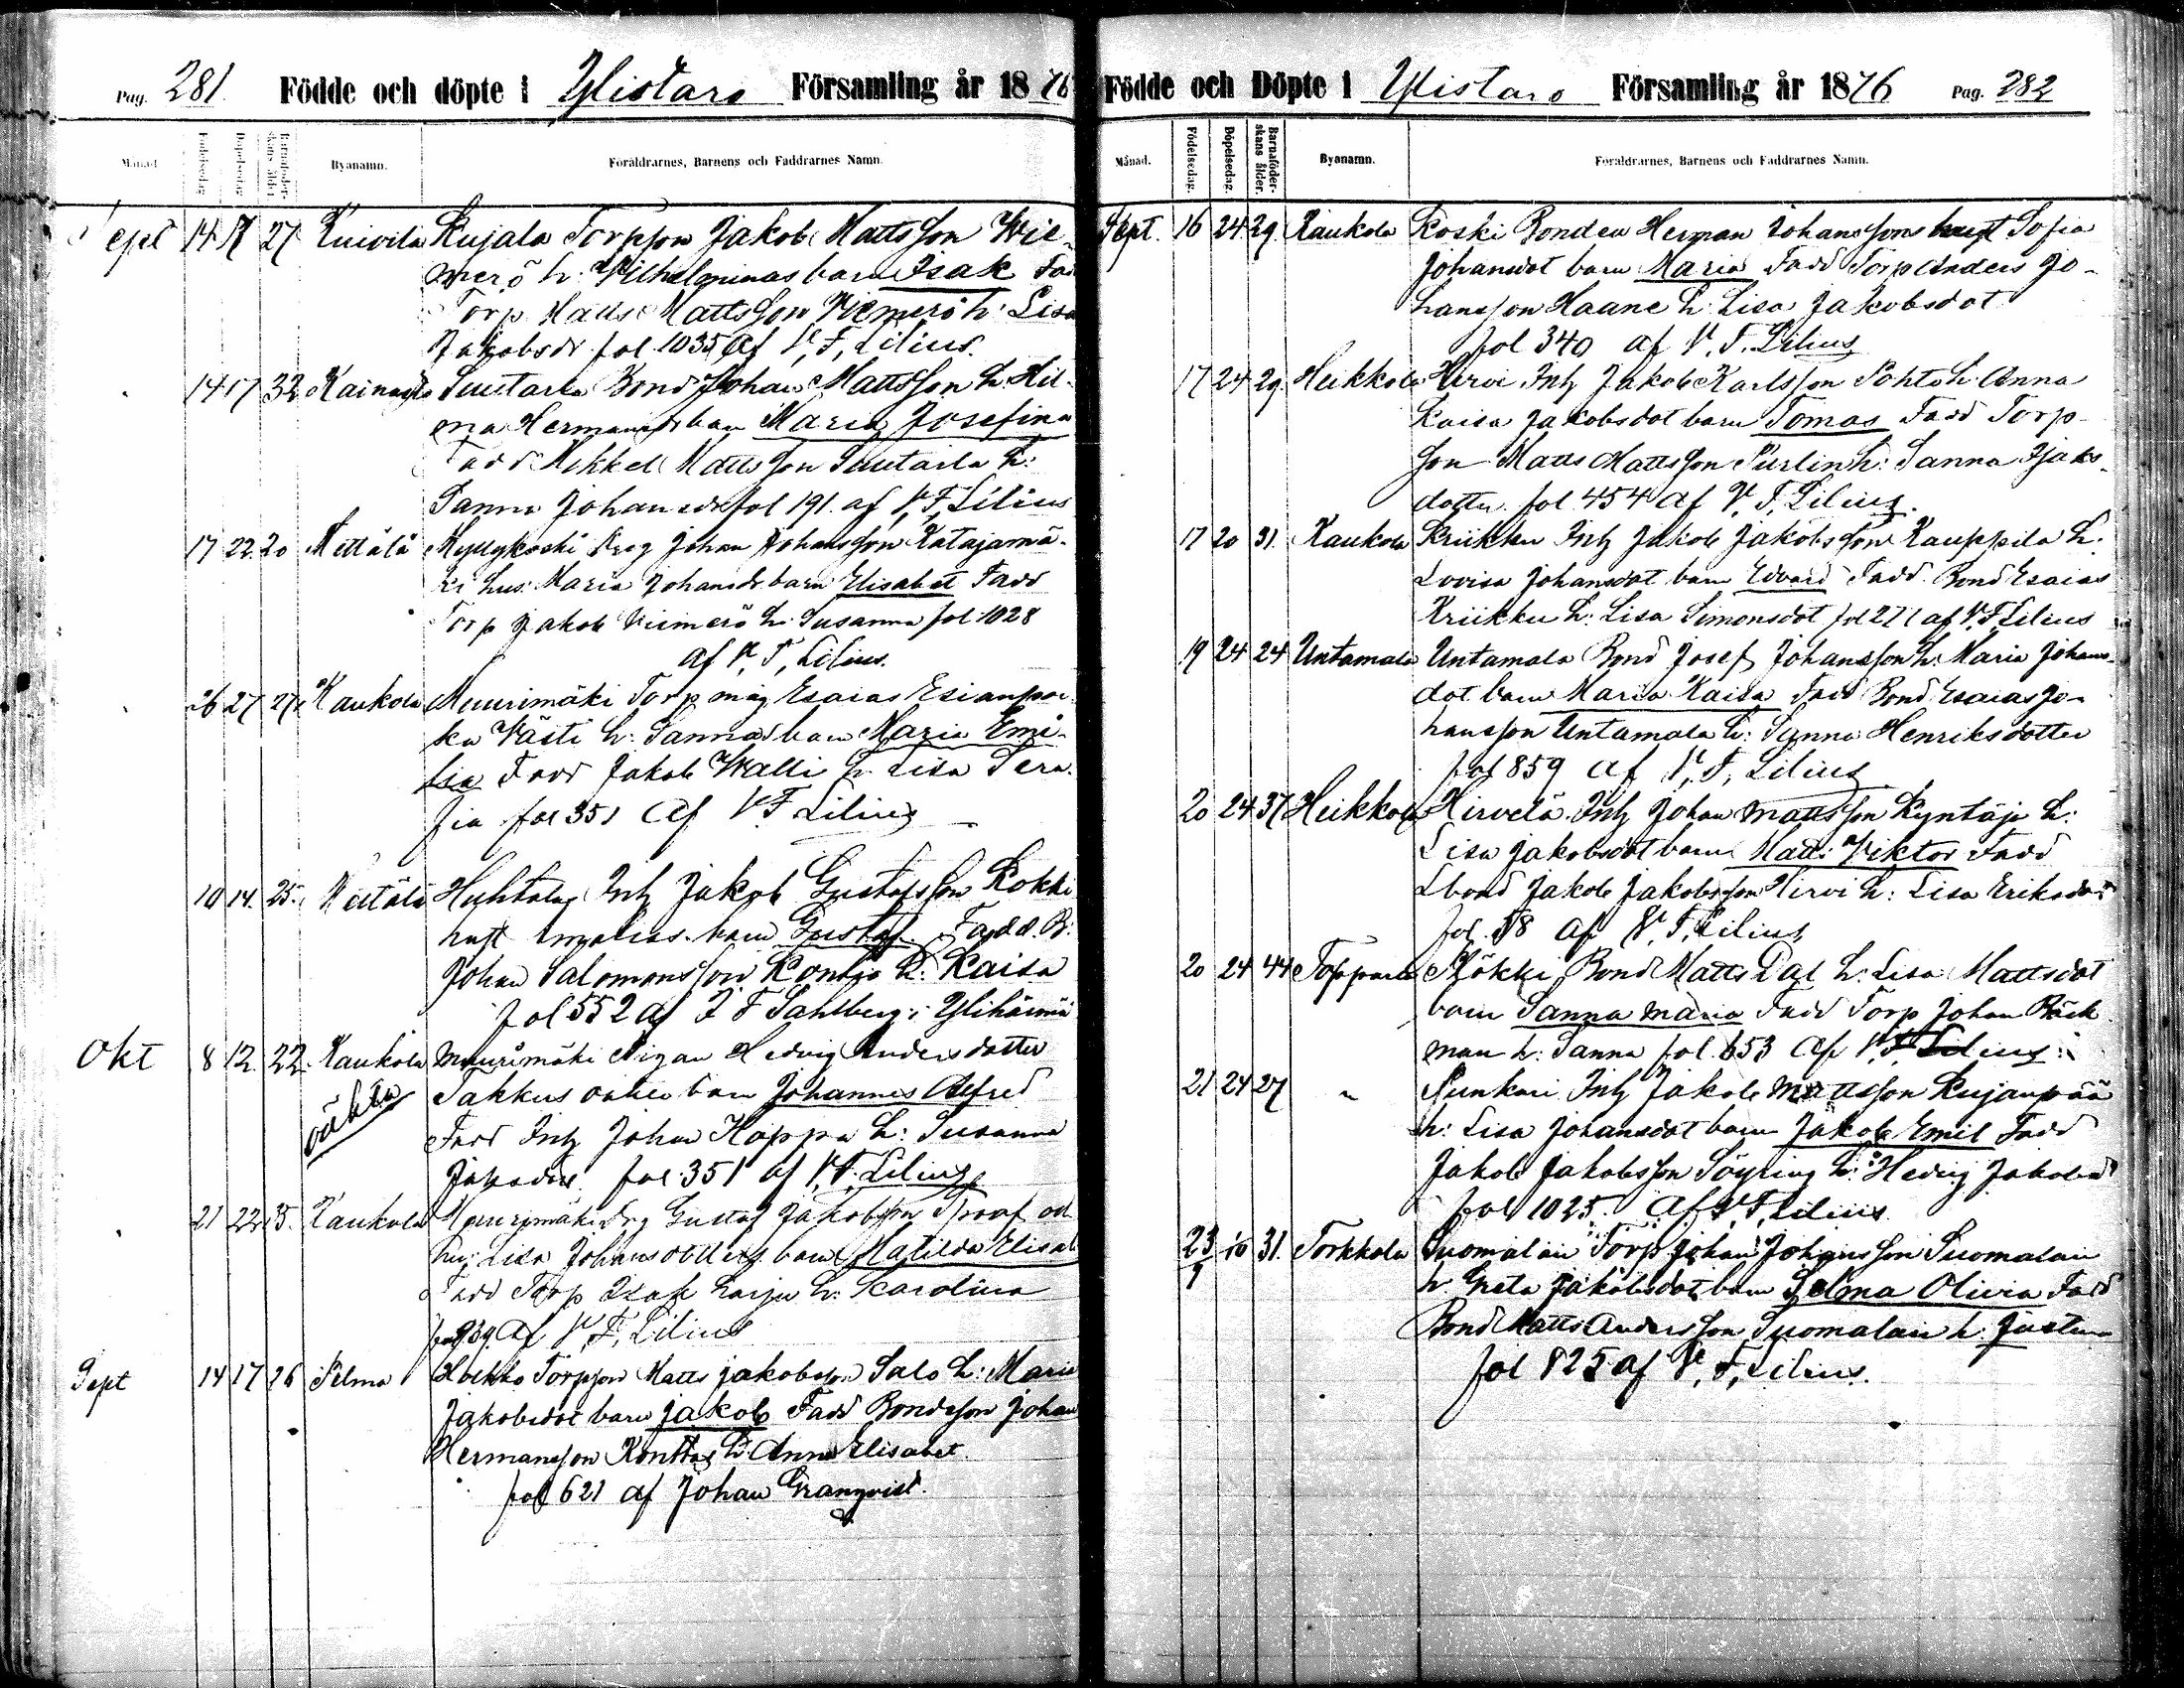 Pag. 281. Födde och döpte i Ylistaro Församling år 1876
Månad Födelsedag. Döpelsedag. Barnaföderskans ålder. Byanamn. Föräldrarnes, Barnens och Faddrarnes Namn.
Sept 14 17 27 Kuivila Kujala Torpson Jakob Mattsson Wie-
merö h. Wilhelminas barn Isak Fad
Torp Matts Mattsson Wiemerö h. Lisa
Jakobsdr fol 1035 af V. F. Lilius.
14 17 32 Kainasto Suutarla Bond Johan Mattsson h. Hil-
ma Hermansdr barn Maria Josefina
Fadd Mikkel Mattsson Suutarla h:
Sanna Johansdr fol 191 af V. F. Lilius
17 22 20 Mettälä Myllykoski Drg Johan Johansson Katajamä-
ki hus. Maria Johansdr barn Elisabet Fadd
Torp Jakob Wiemerö h. Susanna fol 1028
af V. F. Lilius.
26 27 27 Kaukola Muurimäki Torp måg Esaias Esianpoi-
ka Västi h: Sannas barn Maria Emi-
lia Fadd Jakob Walli h. Lisa Sera-
fia fol 351 af V F Lilius
10 14 25 Mettälä Huhtala Inh Jakob Gustafsson Kokki
hust Amalias barn Gustaf Fadd. B.
Johan Salomonsson Kontio h. Kaisa
fol 552 af F F Sahlberg i Ylihärmä
Okt 8 12 22 Kaukola Muurimäki Pigan Hedvig Andersdotter
oäkta Takkus oäkta barn Johannes Alfred
Fadd Inh Johan Hoppa h: Susanna
fol 351 af V. F. Lilius
21 22 35 Kaukola Muurimäki Drg Gustaf Jakobsson och
hus Lisa Johansdotters barn Matilda Elisab
Fadd Torp Isak Harju h: Karolina
fol 939 af V. F. Lilius
Sept 14 17 26 Pelma Torpson Matts Jakobsson Salo h: Maria
Jakobsdot barn Jakob Fadd Bondeson Johan
Hermansson Konttas h. Anna Elisabet
fol 621 af Johan Granqvist.
Födde och Döpte i Ylistaro Församling år 1876 Pag. 282
Månad. Födelsedag. Döpelsedag. Barnaföderskans ålder. Byanamn. Föräldrarnes, Barnens och Faddrarnes Namn.
Sept. 16 24 29 Kaukola Koski Bonden Herman Johanssons hust Sofia
Johansdot barn Maria Fadd Torp Anders Jo-
hansson Haane h. Lisa Jakobsdot
fol 340 af V. F. Lilius
17 24 29 Heikkola Hirvi Inh Jakob Karlsson Pohto h. Anna
Kaisa Jakobsdot barn Tomas Fadd Torp-
son Matts Mattsson Purlin h: Sanna Isaks-
dotter fol 454 af V. F. Lilius.
17 20 31 Kaukola Kriikku Inh Jakob Jakobsson Kauppila h.
Lovisa Johansdot barn Edvard Fadd. Bond Esaias
Kriikku h: Lisa Simonsdot fol 271 af V. F. Lilius
19 24 24 Untamala Untamala Bond Josef Johansson h: Maria Johans-
dot barn Maria Kaisa Fadd Bond Esaias Jo-
hansson Untamala h: Sanna Henriksdotter
fol 859 af V. F. Lilius
20 24 37 Heikkola Hirvelä Inh Johan Mattsson Kyntäjä h:
Lisa Jakobsdot barn Matts Viktor Fadd
Lbond Jakob Jakobsson Hirvi h: Lisa Eriksdot
fol. 58 af V. F. Lilius
20 24 44 Topparla Bond Matts Dal h: Lisa Mattsdot
barn Sanna Maria Fadd Torp Johan Bäck-
man h: Sanna fol 653 af V. F. Lilius
21 24 27 " Sunkari Inh Jakob Mattsson Kujanpää
h: Lisa Johansdot barn Jakob Emil Fadd
Jakob Jakobsson Söyring h: Hedvig Jakobsd
fol 1025 af V. F. Lilius
23/9 10 31 Torkkola Suomalain Torp Johan Johansson Suomalain
h. Greta Jakobsdot barn Selma Olivia Fadd
Bond Matts Andersson Suomalain h. Justina
fol 825 af V. F. Lilius.